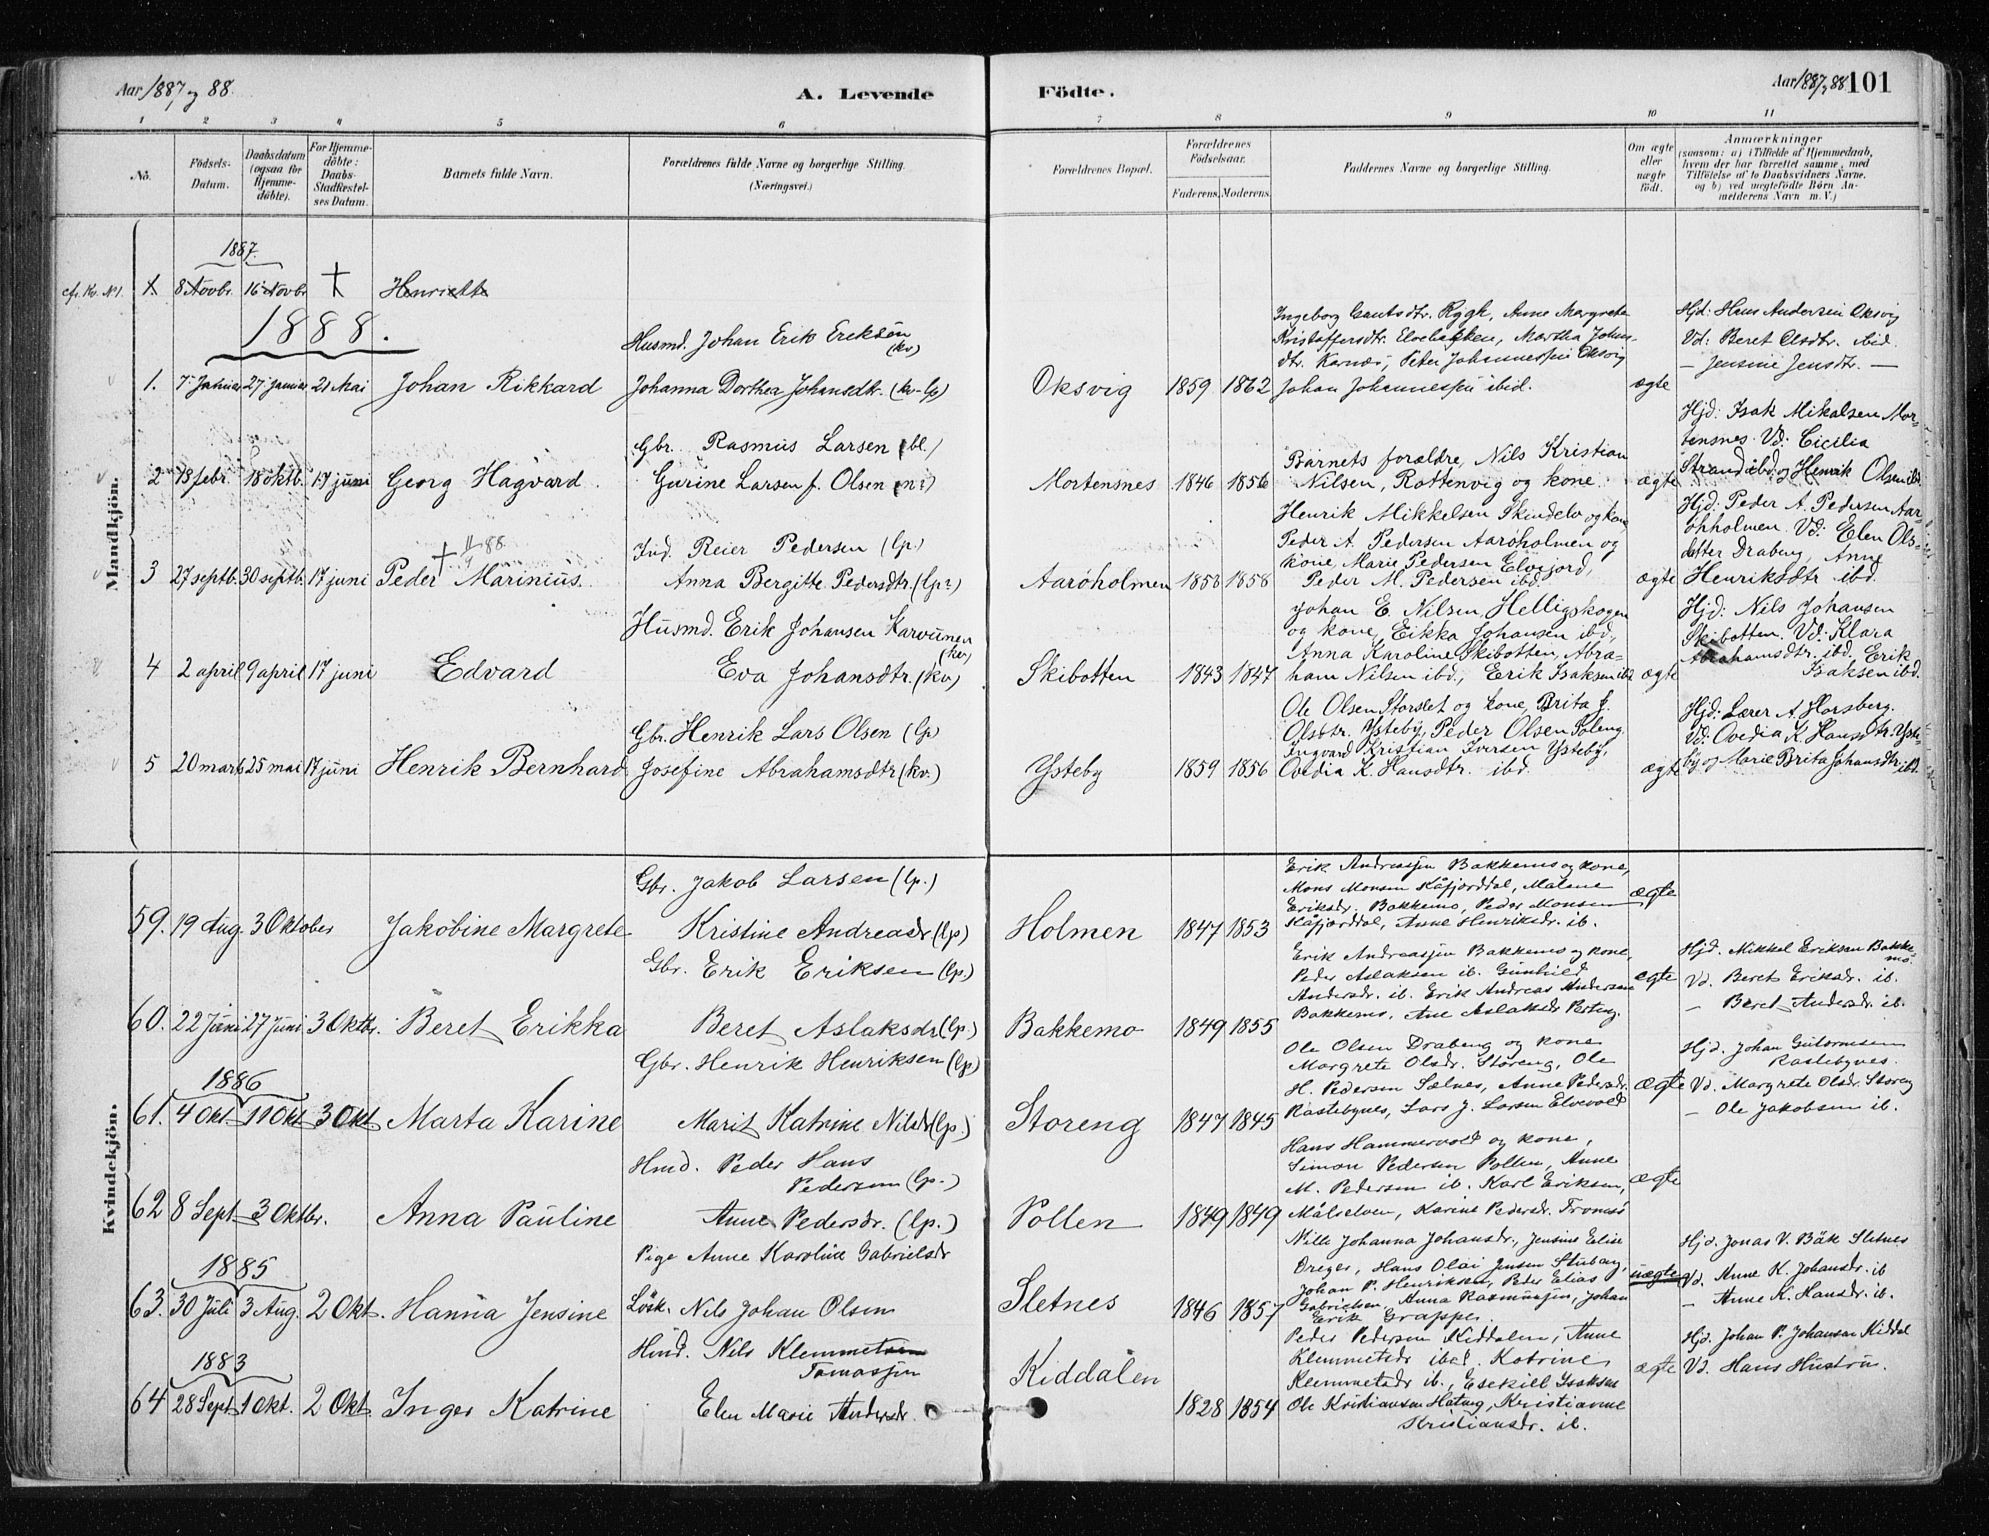 Aar 1887 og 88.
A. Levende
Födte.
Aar 1887 og 88 101
1 2 3 4 5 6 7 8 9 10 11
No.
Födsels-
Datum.
Daabsdatum
(ogsaa for
Hjemme-
döbte).
For Hjemme-
döbte:
Daabs-
Stadfæstel-
ses Datum.
Barnets fulde Navn.
Forældrenes fulde Navne og borgerlige Stilling.
(Næringsvei.)
Forældrenes Bopæl.
Forældrenes
Födselsaar.
Faderens. Moderens.
Faddernes Navne og borgerlige Stilling.
Om ægte
eller
uægte
födt.
Anmærkninger
(saasom: a) i Tilfælde af Hjemmedaab,
hvem der har forrettet samme, med
Tilföielse af to Daabsvidners Navne.
og b) ved uægtefödte Börn An-
melderens Navn m. V.)
Mandkjön.
1887.
cfr. Kv. No 1.
1. 8 Novbr. 16 Novbr Henriette
1888.
1. 7 Januar 27 januar 21 Mai Johan Rikkard
Husmd. Johan Erik Eriksen
(kv)
Johanna Dorthea Johansdtr. (kv-lp)
Oksvig 1859 1862
Johan Johannessen ibid.
ægte
Hjd: Hans Andersen Oksvig
Vd: Beret Olsdtr. ibid.
— Jensine Jensdtr. —
2 18 febr. 18 oktb. 17 juni Georg Hagvard
Gbr. Rasmus Larsen (bl.)
Gurine Larsen f. Olsen (n:)
Mortensnes 1846 1856
Barnets forældre, Nils Kristian
Nilsen, Rottenvig og kone
Henrik Mikkelsen Skindelv og kone
ægte
Hjd: Isak Mikalsen Mor-
tensnes. Vd: Cicilia
Strand ibd. og Henrik Olsen ibd.
3 27 septb. 30 septb. 17 juni Peder Marinius.
Ind. Reier Pedersen (lp.)
Anna Bergitte Pedersdtr. (lp:)
Aarøholmen 1858 1858
Peder A. Pedersen Aarøholmen og
kone, Marie Pedersen Elvejord,
Peder M. Pedersen ibd.
ægte
Hjd: Peder A. Pedersen Aar-
øhholmen. Vd: Elen Ols-
datter Drabeng, Anne
Henriksdtr ibd.
4 2 april 9 april 17 juni Edvard
Husmd. Erik Johansen Karvunen
(kv)
Eva Johansdtr. (kv)
Skibotten 1843 1847
Johan E. Nilsen, Helligskogen
og kone, Eikka Johansen ibd,
Anna Karoline Skibotten, Abra-
ham Nilsen ibd., Erik Isaksen ibd
ægte
Hjd: Nils Johansen
Skibotten. Vd: Klara
Abrahamsdtr. ibd. Erik
Isaksen ibd.
5 20 marts 25 mai 17 juni Henrik Bernhard
Gbr. Henrik Lars Olsen (lp)
Josefine Abrahamsdtr (kv.)
Ysteby 1859 1856
Ole Olsen Storslet og kone, Brita J.
Olsdtr. Ysteby, Peder Olsen Soleng
Ingvard Kristian Iversen Ysteby,
Ovedia K. Hansdtr. ibd.
ægte
Hjd: Lærer A. Horsberg.
Vd: Ovedia K. Hansdtr. Yste-
by og Marie Brita Johansdtr
ibd.
Kvindekjön.
59. 19 Aug. 3 Oktober Jakobine Margrete
Gbr. Jakob Larsen (lp.)
Kristine Andreasdr (lp)
Holmen 1847 1853
Erik Andreassen Bakkemo og kone,
Mons Monsen Kåfjorddal, Malene
Eriksdr. Bakkemo, Peder Monsen
Kåfjorddal, Anne Henriksdr. ib.
ægte
60. 22 Juni 27 Juni 3 Oktbr. Beret Erikka
Gbr. Erik Eriksen (lp.)
Beret Aslaksdr (lp.)
Bakkemo 1849 1855
Erik Andreassen Bakkemo og kone,
Peder Aslaksen ib. Gunhild
Andersdr. ib. Erik Andreas Andersen
Bakkemo, Ane Aslaksdr
ægte
Hjd. Mikkel Eriksen Bakke-
mo.
Vd. Beret Eriksdr. ib.
— Beret Andersdr. ib.
1886
61. 4 Okt. 11 Okt 3 Okt Marta Karine
Gbr. Henrik Henriksen (lp)
Marit Katrine Nilsdr (lp.)
Storeng 1847 1845
Ole Olsen Drabeng og kone
Margrete Olsdr. Storeng, Ole
H. Pedersen Sælnes, Anne Pedersdr.
Rastebynes, Lars J. Larsen Elvevold
ægte
Hjd. Johan Gutormsen
Rastebynes.
Vd. Margrete Olsdr. Storeng
— Ole Jakobsen ib.
62 8 Sept 3 Oktbr. Anna Pauline
Hmd. Peder Hans
Pedersen (lp.)
Anne Pedersdr. (lp.)
Pollen 1849 1849
Hans Hammervold og kone,
Simon Pedersen Pollen, Anne
M. Pedersen ib. Karl Eriksen,
Målselven, Karine Pedersdr. Tromsö
ægte
1885
63. 30 Juli 3 Aug. 2 Okt. Hanna Jensine
Pige Anne Karoline Gabrielsdr
Lösk. Nils Johan Olsen
Sletnes 1846 1857
Nille Johanna Johansdr., Jensine Elise
Dreyer, Hans Olai Jensen Stubeng,
Johan P. Henriksen, Peder Elias
Gabrielsen, Anna Rasmussen, Johan
Erik Grapper.
uægte
Hjd. Jonas V. Bäk Sletnes
Vd. Anne K. Johansdr. ib
— Anne K. Hansdr. ib.
1883
64 28 Sept 1 Okt. 2 Okt. Inger Katrine
Hmd. Nils Klemmetsen
Tomassen
Elen Marie Andersdr.
Kiddalen 1828 1854
Peder Pedersen Kiddalen, Anne
Klemmetsdr ibd. Katrine
Klemmetsdr ib., Esekiel Isaksen
Ole Kristiansen Hateng, Kristianne
Kristiansdr. ib.
ægte
Hjd. Johan P. Johansen Kiddal
Vd. Hans Hustru.